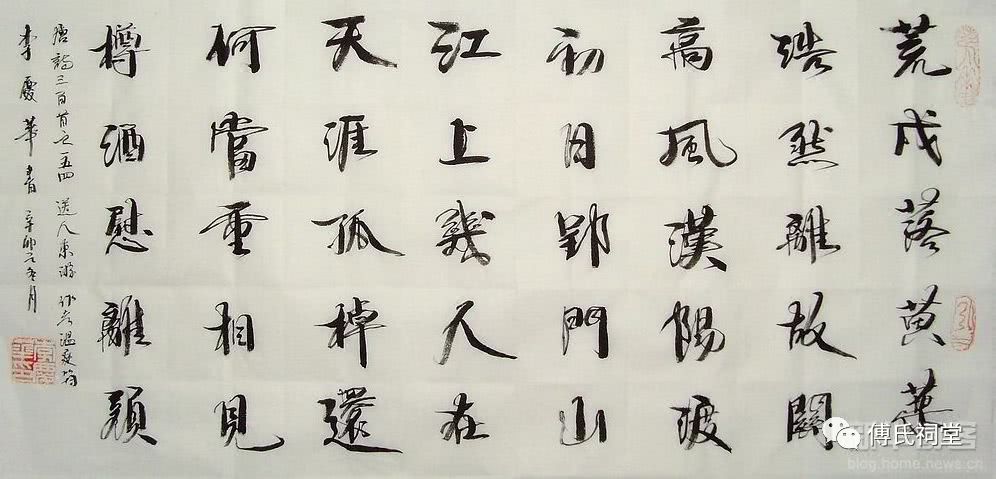 荒戍落黄葉
浩然離故關
高風漢陽渡
初日郢門山
江上幾人在
天涯孤棹還
何當重相見
樽酒慰離顏
唐詩三百首之一五四 送人東游 作者溫庭筠
李慶華書 辛卯之冬月
傅氏祠堂
blog.home.news.cn